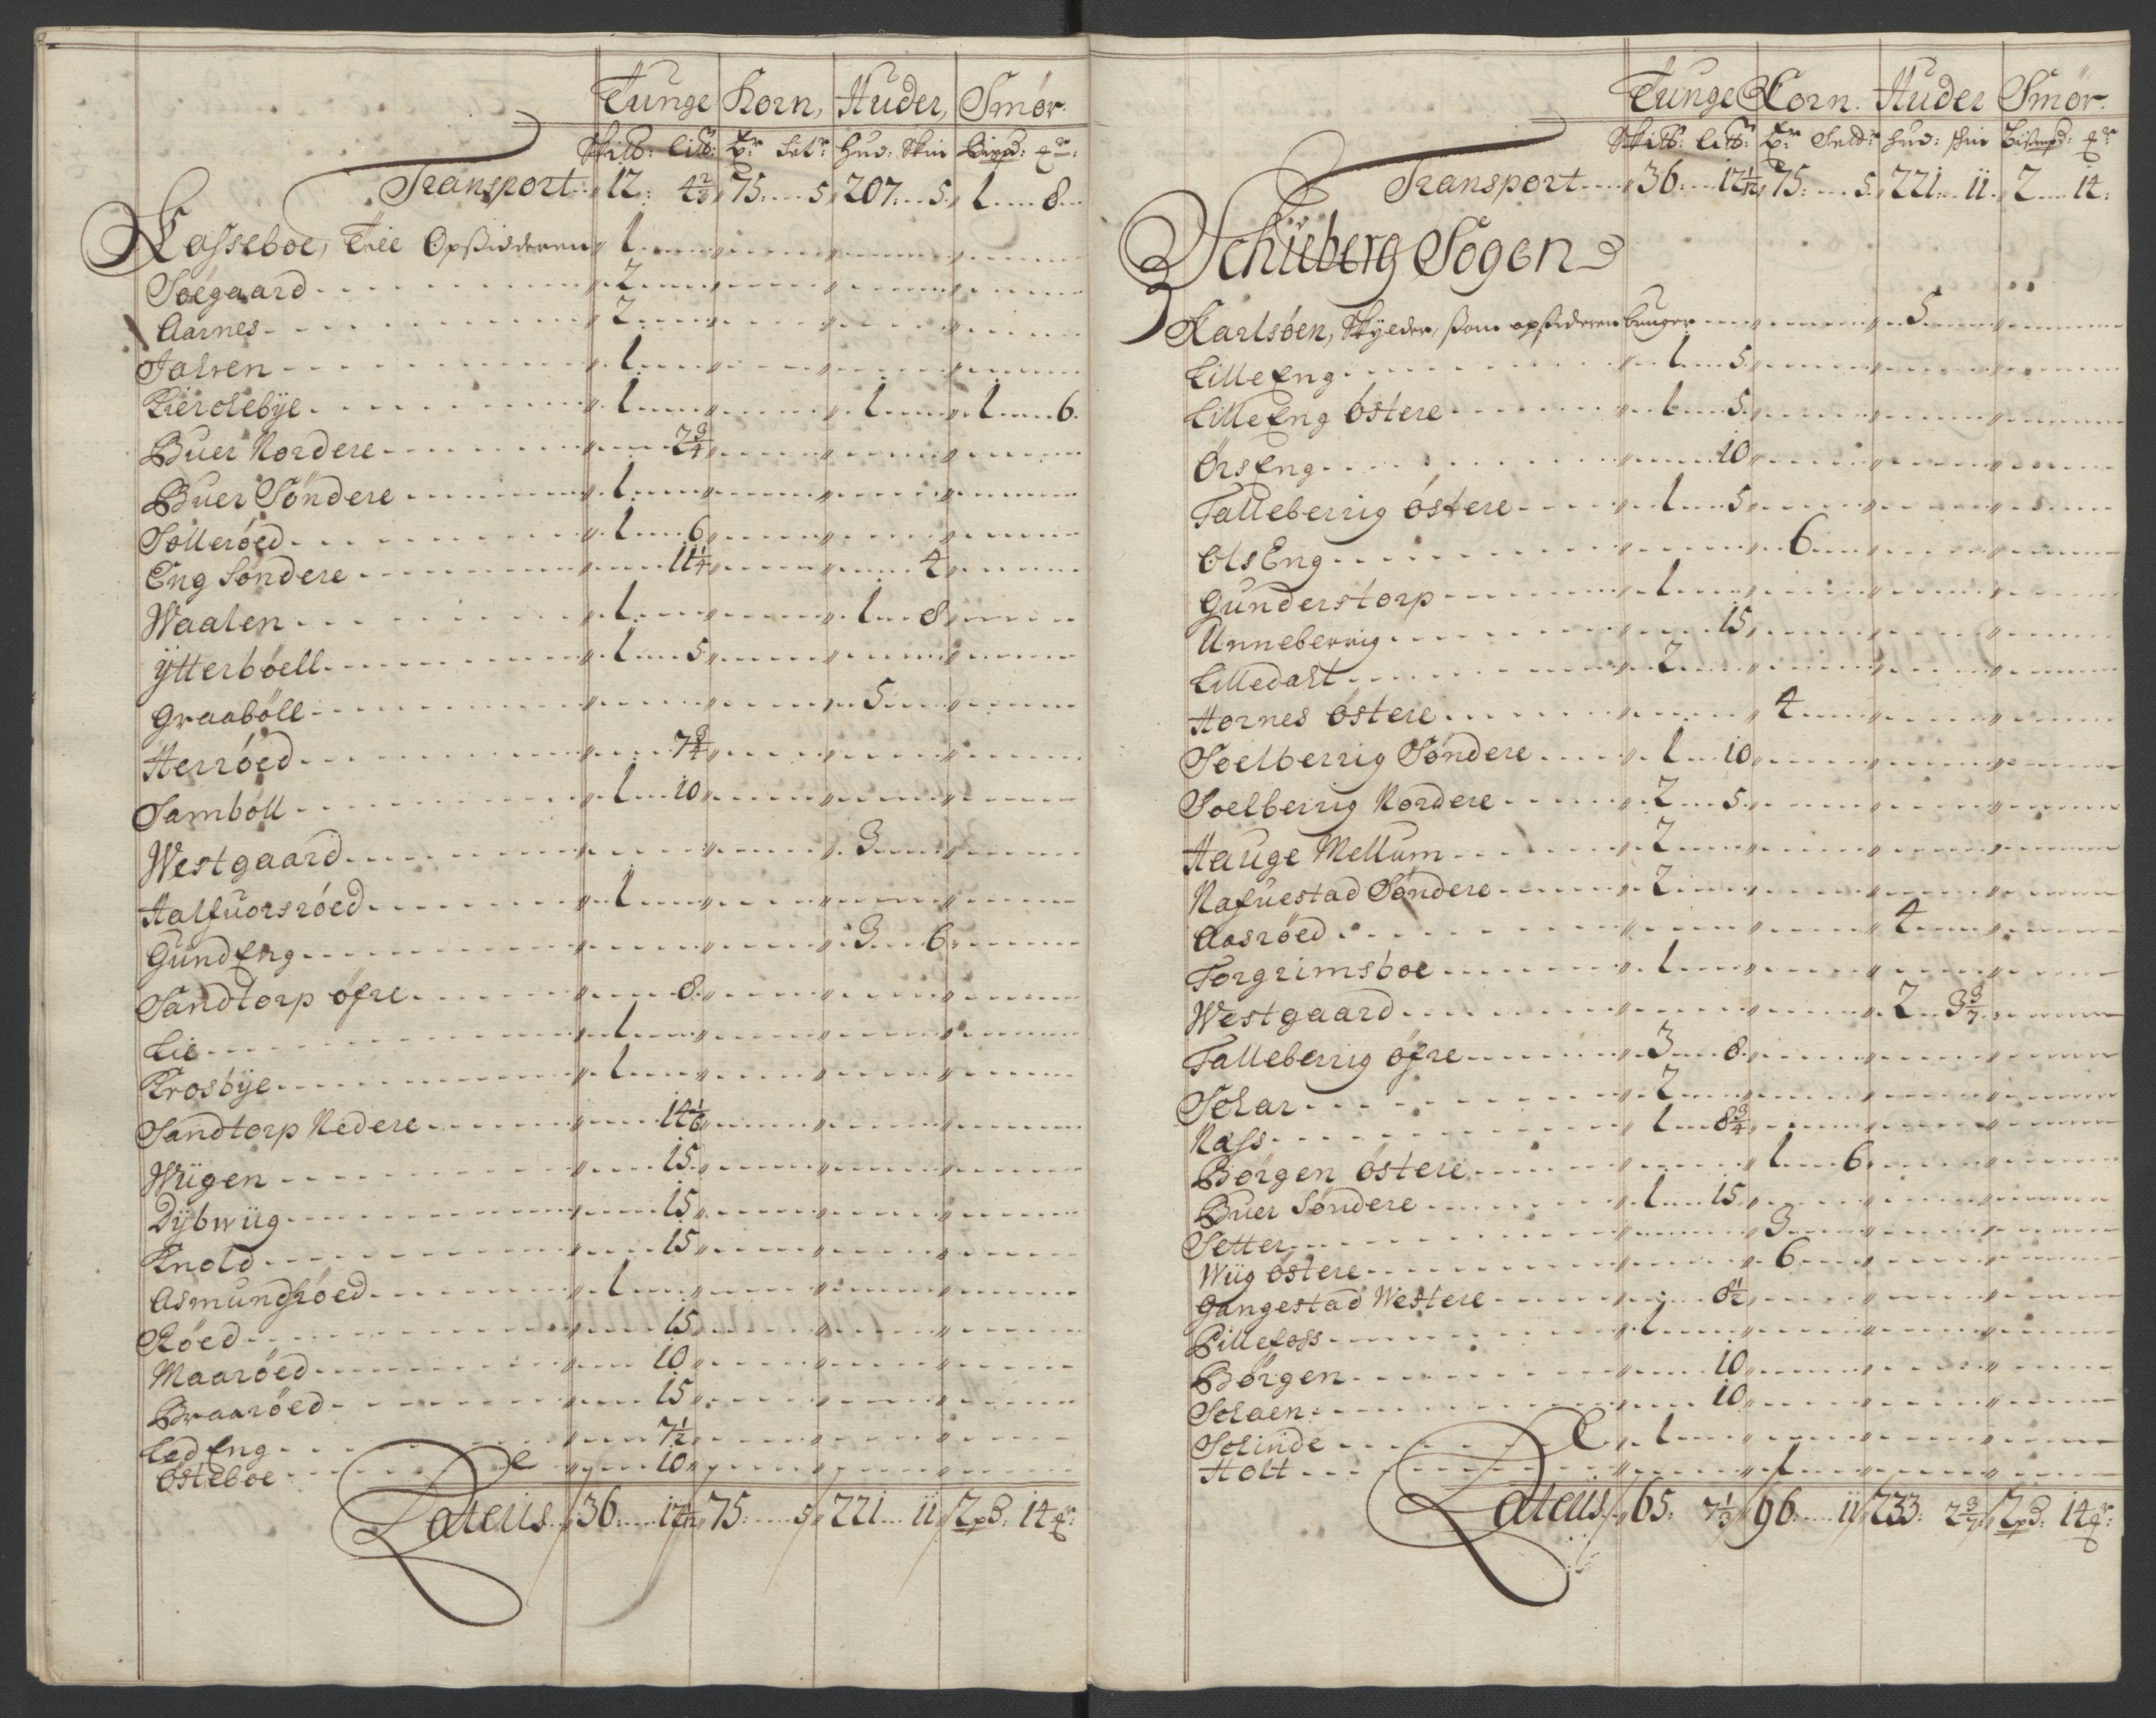 Tunge Korn, Huder, Smør.
Skilb: Lilb: Hud: Skin
Transport 12: 4 2/3 75 5 207 5 1 8
Kasseboe, Trie Opsidderen 1
Søegaard 2
Aarnes 2
Jalsen 1
Kierchebÿe 1 1 1 6
Buer Nordere 2 3/4
Buer Søndere 1
Sollerøed 1 6
Eng Søndere 11 1/4 4
Waalen 1 1 8
Ÿtterbøell 1 5
Graabøll 5
Herrøed 7 3/4
Sambøll 1 10
Westgaard 3
Halfuorsrøed 1
GundEng 3 6
Sandtorp øfre 8
Lie 1
Krosbÿe 1
Sandtorp Nedere 14 1/6
Wiigen 15
Dÿbwiig 15
Knold 15
Asmundsrøed 1
Røed 15
Maarøed 10
Braarøed 15
LedEng 7 1/2
Østeboe 10
Lateus 36 17 1/12 75 5 221 11 2 pd: 14
Tunge Korn. Huder Smør.
Skilb: Lilb: Hud: skin
Transport 36 17 1/12 75 5 221 11 2 14
Schieberg Sogen
Karlsøen, Skÿlder, som opsideren bruger 5
Lille Eng 1 5
Lille Eng Østere 1 5
ØrsEng 10
Talleberrig østere 1 5
OlsEng 6
Gunderstorp 1
Unneberrig 15
Lilledalt 2
Hornes Østere 4
Soelberrig Søndere 1 10
Soelberrig Nordere 2 5
Hauge Mellum 2
Nafuestad Søndere 2
Aasrøed 4
Torgrimsboe 1
Westgaard 2 3 3/7
Talleberrig øfre 3 8
Solar 2
Nass 1 8 3/4
Børgen Østere 1 6
Buer Søndere 1 15
Setter 3
Wiig østere 6
Gangestad Westere 8 1/2
Pillefoss 1
Børgen 10
Solaen 10
Solinde 1
Holt 1
Lateus 65 7 1/3 96 11 233 2 3/7 2 pd: 14